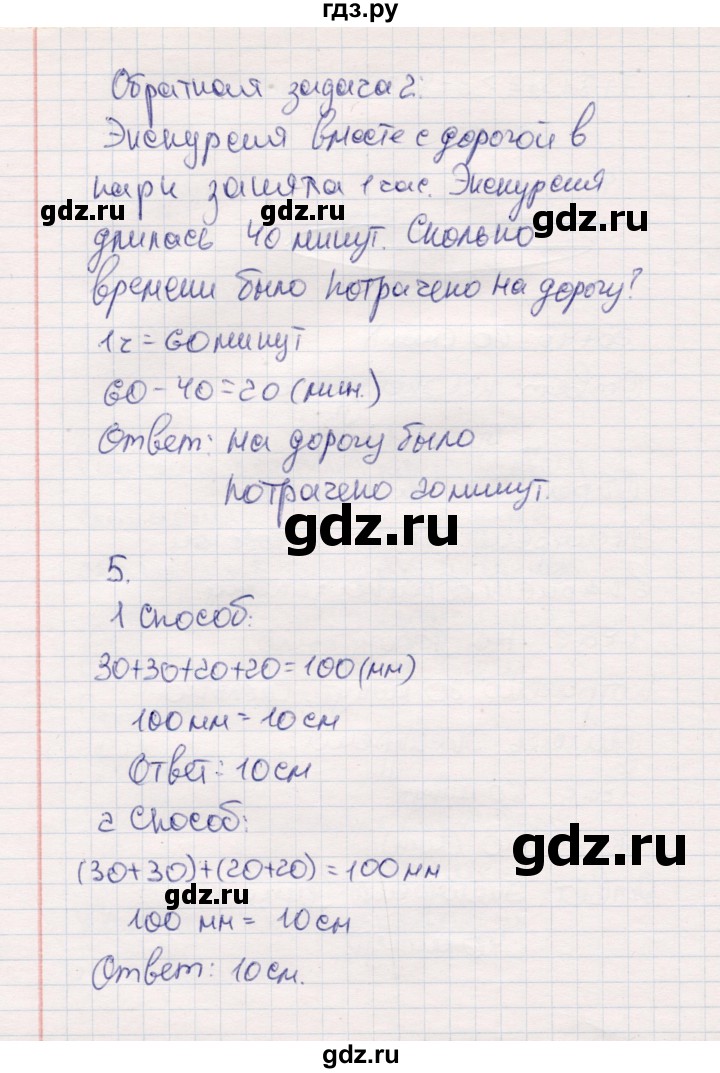 гдз.ру
Обратная задача 2:
Экскурсия вместе с дорогой в
парк заняла 1 час. Экскурсия
gdz.ru gdz.ru
длилась 40 минут. Сколько
gdz.ru
времени было потрачено на дорогу?
1 ч = 60 минут
60 - 40 = 20 (мин.)
Ответ: на дорогу было
потрачено 20 минут.
gdz.ru
5.
1 способ:
30+30+20+20=100 (мм)
100 мм = 10 см
Ответ: 10 см
2 способ:
gdz.ru
(30+30)+(20+20) = 100 мм
gdz.ru
100 мм = 10 см
Ответ: 10 см.
gdz.ru